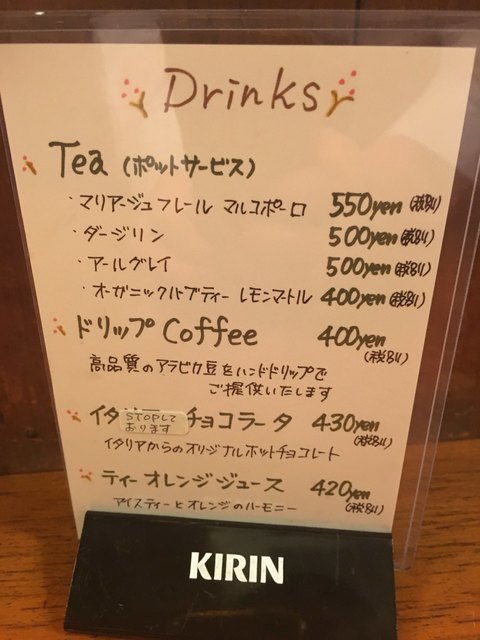 Drinks
Tea (ポットサービス)
・マリアージュフレール マルコポーロ 550yen (税別)
・ダージリン 500yen (税別)
・アールグレイ 500yen (税別)
・オーガニックハーブティー レモンマートル 400yen (税別)
ドリップ Coffee 400yen
(税別)
高品質のアラビカ豆をハンドドリップで
ご提供いたします
イタ チョコラータ 430yen
STOPして
おります
(税別)
イタリアからのオリジナルホットチョコレート
ティー オレンジジュース 420yen
アイスティーとオレンジのハーモニー (税別)
KIRIN